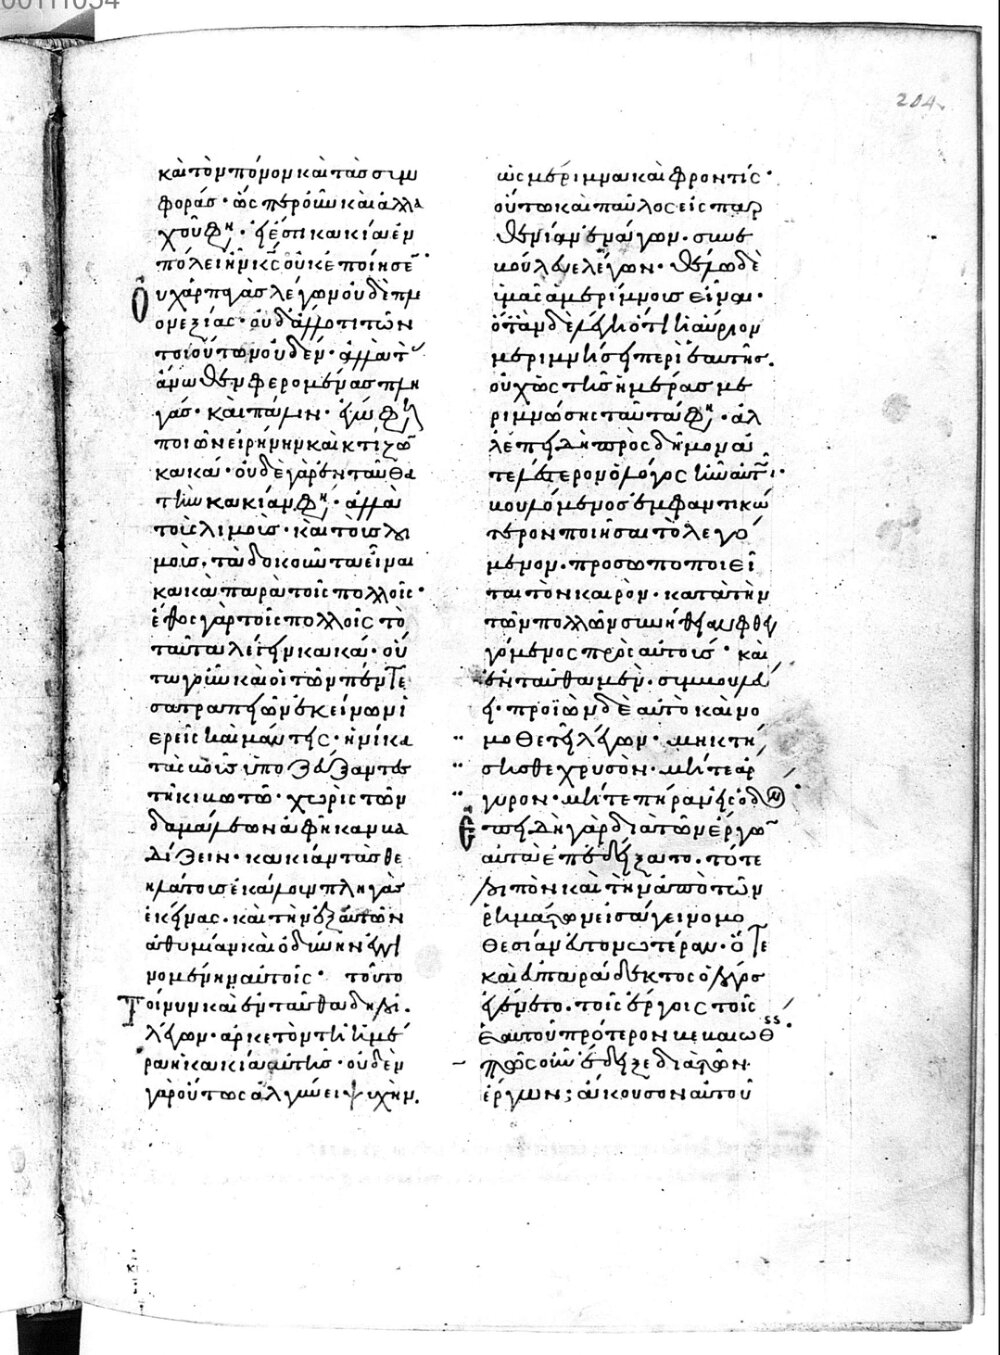 204
καὶ τὸν πόνον καὶ τὰς συμ
φοράς· ὥσπερ οὖν καὶ ἀλλα
χοῦ φη· εἰ ἔστι κακία ἐν
πόλει ἣν κς οὐκ ἐποίησε
Οὐ γὰρ πργὰς λέγων οὐδὲ πλε
ονεξίας· οὐδ' ἄλλό τι τῶν
τοιούτων οὐδέν· ἀλλὰ τὰς
ἄνωθεν φερομένας πλη
γάς· καὶ πάλιν· ἐγὼ φη
ποιῶν εἰρήνην καὶ κτίζων
κακά· οὐδὲ γὰρ ἐνταῦθα
τὴν κακίαν φη· ἀλλὰ
τοὺς λιμοὺς· καὶ τοὺς λοι
μοὺς· τὰ δοκοῦντα εἶναι
κακὰ παρὰ τοῖς πολλοῖς·
ἔθος γὰρ τοῖς πολλοῖς τὸ
ταῦτα λέγειν κακά· οὕ
τω γοῦν καὶ οἱ τῶν πέντε
σατραπειῶν ἐκείνων ἱ
ερεῖς καὶ μάντεις· ἡνίκα
τὰς βοῦς ὑποζεύξαντες
τῇ κιβωτῷ· χωρὶς τῶν
δαμάλεων ἀφῆκαν βα
δίζειν· κακίαν τὰς θε
ηλάτους ἐκάλουν πληγὰς
ἐκείνας· καὶ τὴν ἐξ αὐτῶν
ἀθυμίαν καὶ ὀδύνην ἐγγι
νομένην αὐτοῖς· τοῦτο
Τοίνυν καὶ ἐνταῦθα δηλοῖ·
λέγων· ἀρκετὸν τῇ ἡμέ
ρᾳ ἡ κακία αὐτῆς· οὐδὲν
γὰρ οὕτως ἀλγύνει ψυχὴν.
ὡς μέριμνα καὶ φροντίς·
οὕτω καὶ παῦλος εἰς παρ
θενίαν ἐνάγων· συνε
βούλευε λέγων· θέλω δὲ
ὑμᾶς ἀμερίμνους εἶναι·
ὅταν δὲ λέγῃ ὅτι ἡ αὔριον
μεριμνήσει περὶ ἑαυτῆς.
οὐχ ὡς τῆς ἡμέρας με
ριμνώσης ταῦτά φη· ἀλ
λ' ἐπειδὴ πρὸς δῆμον ἀ
τελέστερον ὁ λόγος ἦν αὐτῷ·
βουλόμενος ἐμφαντικώ
τερον ποιῆσαι τὸ λεγό
μενον· προσωποποιεῖ
ται τὸν καιρόν· κατὰ τὴν
τῶν πολλῶν συνήθειαν φθεγ
γόμενος πρὸς αὐτούς· καὶ
ἐνταῦθα μὲν· συμβουλεύ
ει· προϊὼν δὲ αὐτὸ καὶ νο
μοθετεῖ λέγων· μὴ κτή
σησθε χρυσὸν· μήτε ἄρ
γυρον· μήτε πήραν εἰς ὁδόν·
Ἐπειδὴ γὰρ διὰ τῶν ἔργων
αὐτὰ ἐπεδείξατο· τότε
λοιπὸν καὶ τὴν ἀπὸ τῶν
ῥημάτων εἰσάγει νομο
θεσίαν εὐτονωτέραν· ὅτε
καὶ εὐπαράδεκτος ὁ λόγος
ἐγένετο· τοῖς ἔργοις τοῖς
ἑαυτοῦ πρότερον βεβαιωθείς·
ποῦ οὖν ἔδειξε διὰ τῶν
ἔργων; ἄκουσον αὐτοῦ